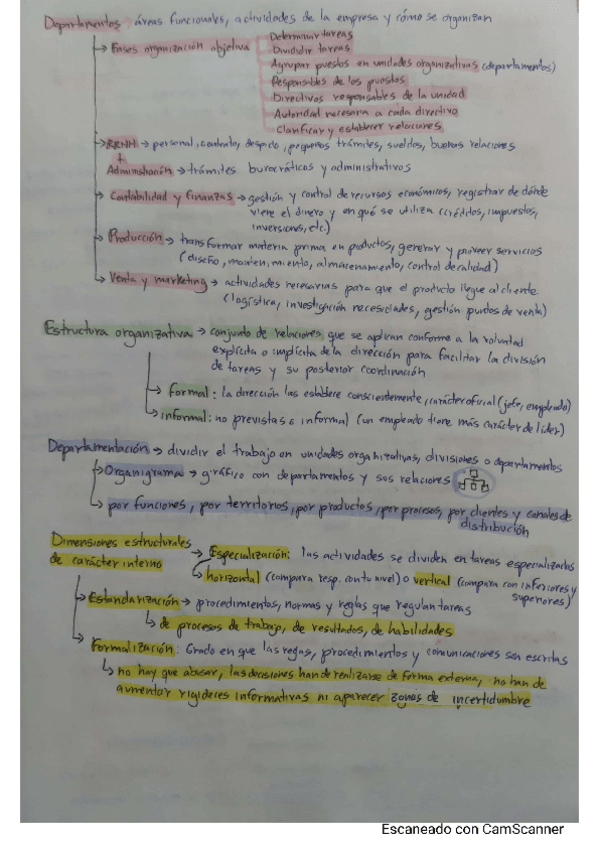 Departamentos → áreas funcionales, actividades de la empresa y cómo se organizan
→ Fases organización objetiva
Determinar tareas
Dividir tareas
Agrupar puestos en unidades organizativas (departamentos)
Responsables de los puestos
Directivos responsables de la unidad
Autoridad necesaria a cada directivo
Clarificar y establecer relaciones
→ RRHH → personal, contrato, despido, pequeños trámites, sueldos, buenas relaciones
+
Administración → trámites burocráticos y administrativos
→ Contabilidad y finanzas → gestión y control de recursos económicos, registrar de dónde
viene el dinero y en qué se utiliza (créditos, impuestos,
inversiones, etc.)
→ Producción → transformar materia prima en productos, generar y proveer servicios
(diseño, mantenimiento, almacenamiento, control de calidad)
→ Venta y marketing → actividades necesarias para que el producto llegue al cliente
(logística, investigación necesidades, gestión puntos de venta)
Estructura organizativa → conjunto de relaciones, que se aplican conforme a la voluntad
explícita o implícita de la dirección para facilitar la división
de tareas y su posterior coordinación
→ formal: la dirección las establece conscientemente, carácter oficial (jefe, empleado)
→ informal: no previstas e informal (un empleado tiene más carácter de líder)
Departamentación → dividir el trabajo en unidades organizativas, divisiones o departamentos
→ Organigrama → gráfico con departamentos y sus relaciones
→ por funciones, por territorios, por productos, por procesos, por clientes y canales de
distribución
Dimensiones estructurales
de carácter interno
→ Especialización: las actividades se dividen en tareas especializadas
horizontal (compara resp. con tu nivel) o vertical (compara con inferiores y
superiores)
→ Estandarización → procedimientos, normas y reglas que regulan tareas
→ de procesos de trabajo, de resultados, de habilidades
→ Formalización: Grado en que las reglas, procedimientos y comunicaciones son escritas
→ no hay que abusar, las decisiones han de realizarse de forma externa, no han de
aumentar rigideces informativas ni aparecer zonas de incertidumbre
Escaneado con CamScanner